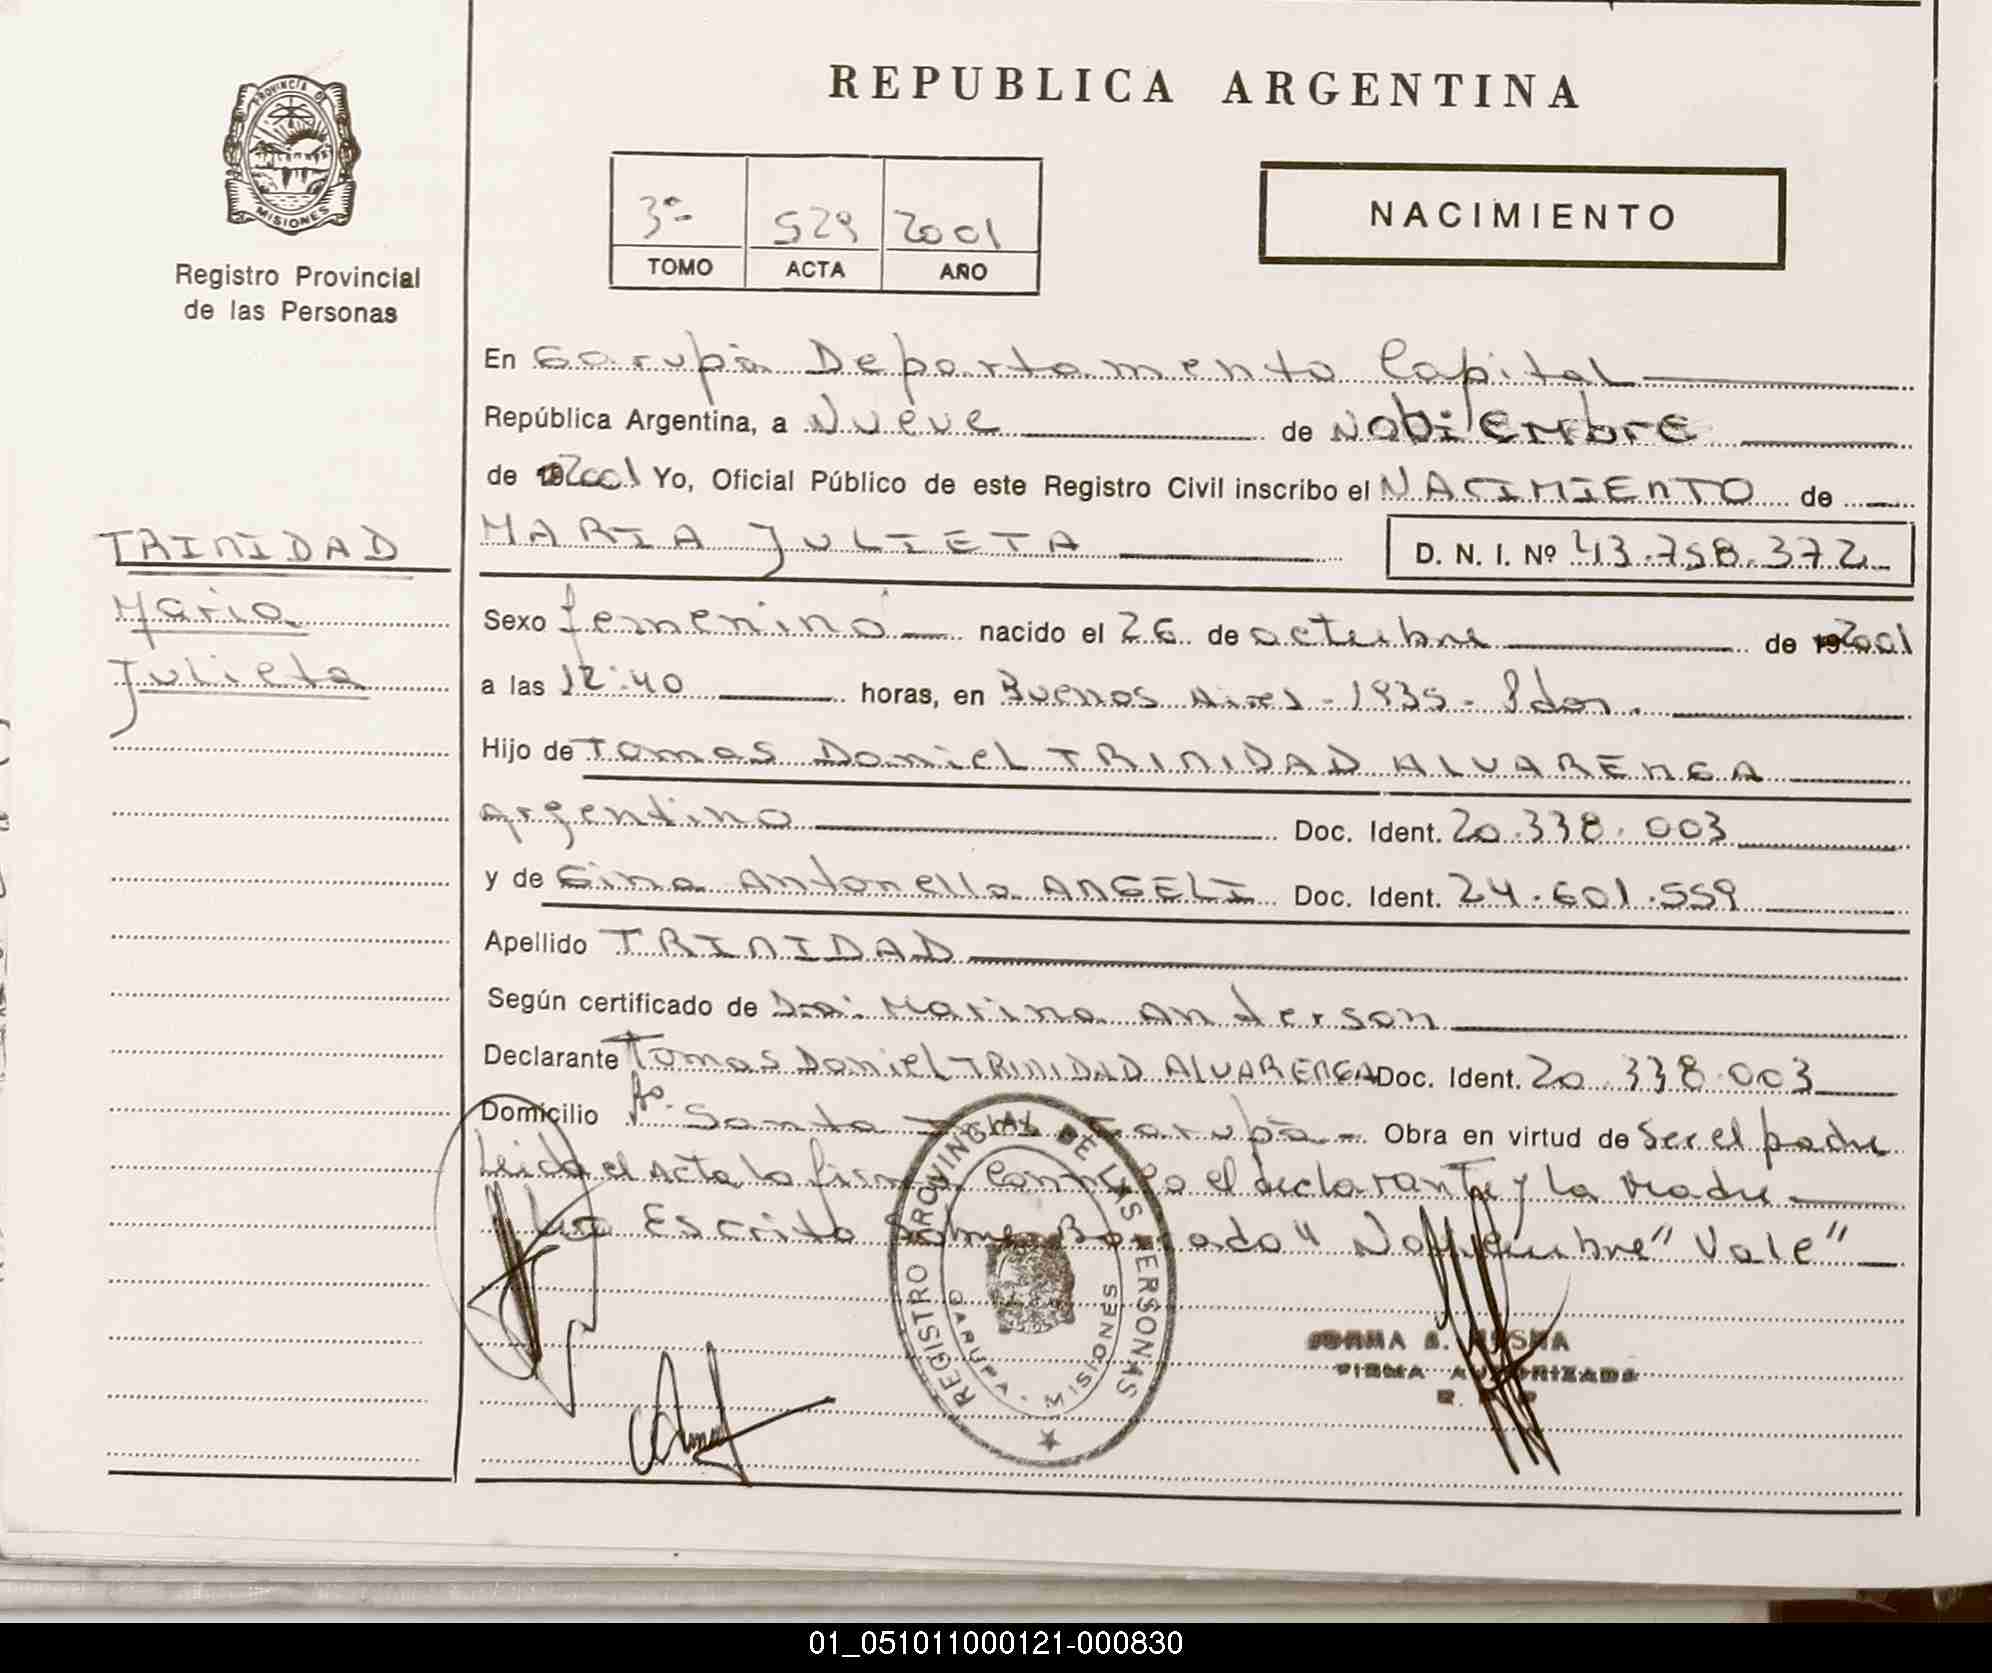 REPUBLICA ARGENTINA
PROVINCIA DE
MISIONES
Registro Provincial
de las Personas
3º 529 2001
TOMO ACTA AÑO
NACIMIENTO
En Garupá Departamento Capital
República Argentina, a Nueve de Nobiembre
de 2001 Yo, Oficial Público de este Registro Civil inscribo el NACIMIENTO de
TRINIDAD
Maria
Julieta
MARIA JULIETA D. N. I. Nº 43.758.372
Sexo femenino nacido el 26 de octubre de 2001
a las 12:40 horas, en Buenos Aires - 1935 - Pdas.
Hijo de Tomas Daniel TRINIDAD ALVARENGA
argentino Doc. Ident. 20.338.003
y de Gina Antonella ANGELI Doc. Ident. 24.601.559
Apellido TRINIDAD
Según certificado de Dra: Marina Anderson
Declarante Tomas Daniel TRINIDAD ALVARENGA Doc. Ident. 20.338.003
Domicilio Santa Garupá - Obra en virtud de Ser el padre
Leida el Acta la firma conmigo el declarante y la Madre
Lo Escrito Sobre Borrado "Noviembre" Vale"
REGISTRO PROVINCIAL DE LAS PERSONAS
GARUPA - MISIONES
FIRMA AUTORIZADA
01_051011000121-000830